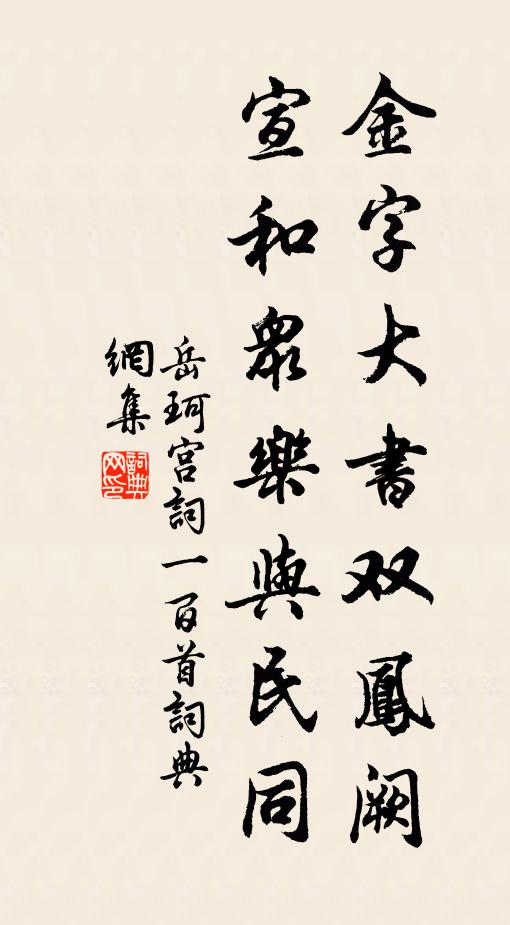 金字大書双鳳闕
宣和衆樂與民同
岳珂宫詞一百首詞典
網集
詞典網印